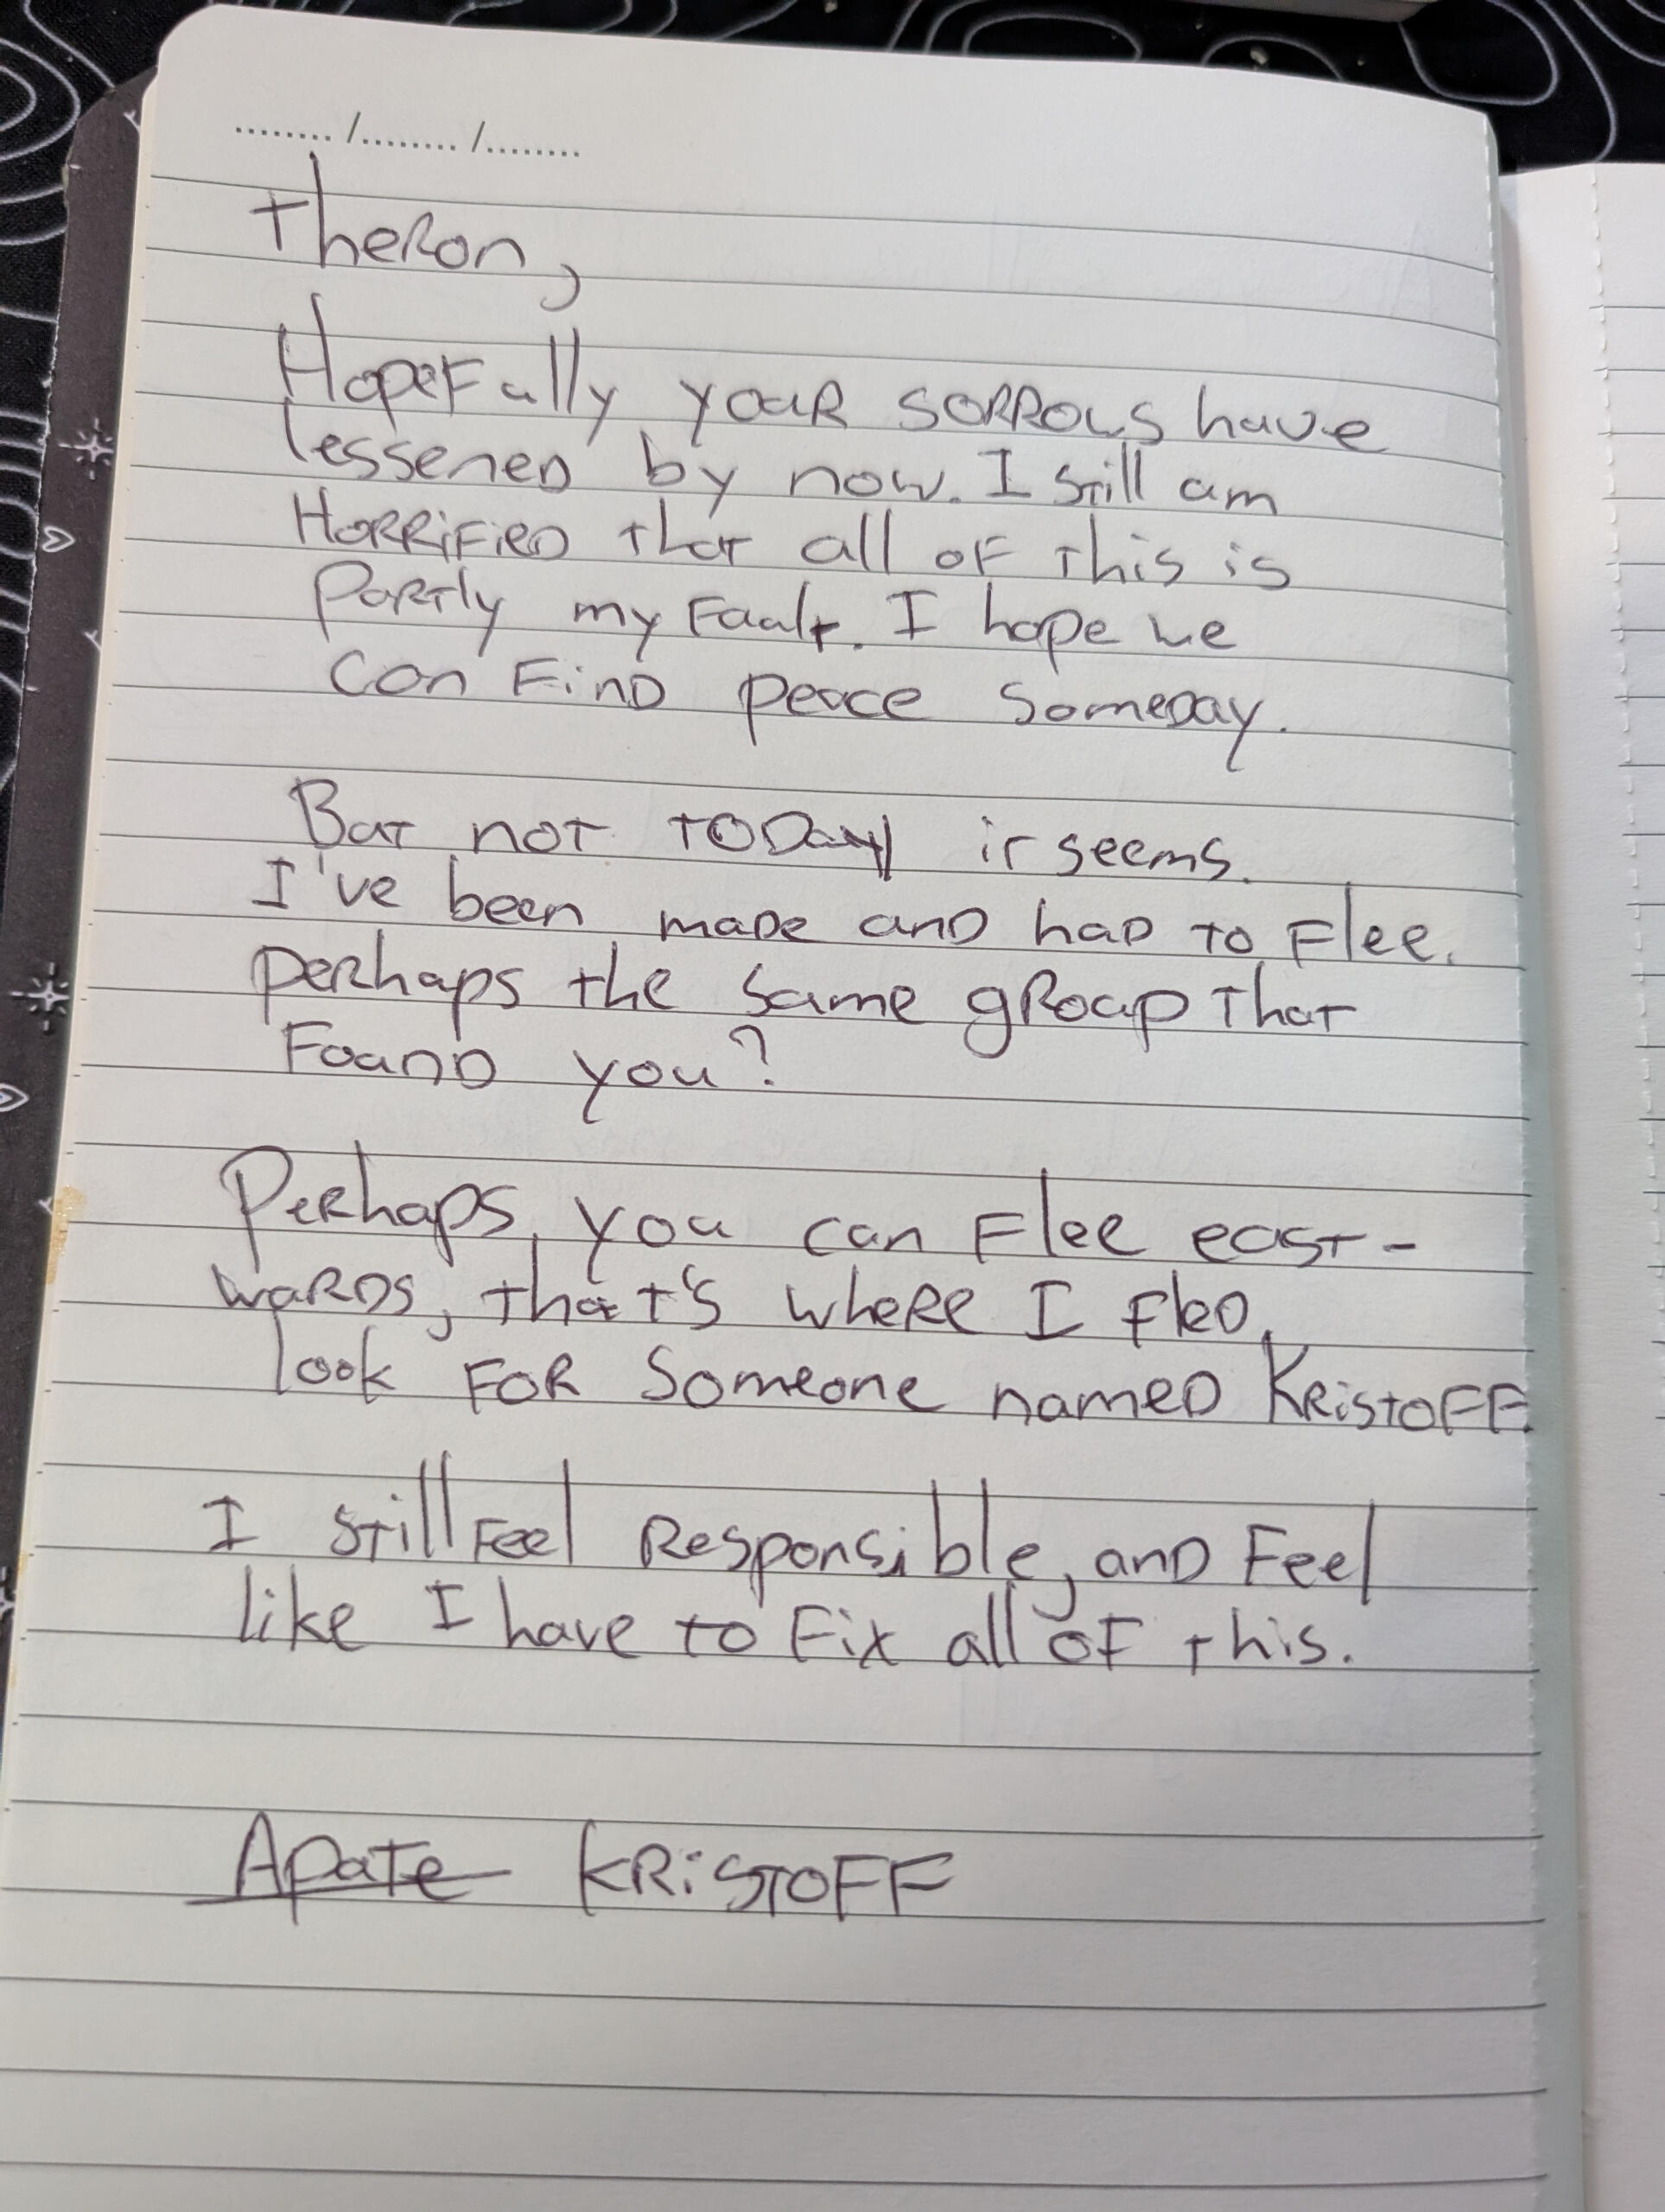 ......../......../........
Theron,
Hopefully your sorrows have
lessened by now. I still am
Horrified that all of this is
Partly my fault. I hope we
can find peace someday.
But not today it seems.
I've been made and had to flee.
perhaps the same group that
found you?
Perhaps, you can flee east-
wards, that's where I fled,
look for someone named Kristoff.
I still feel responsible, and feel
like I have to fix all of this.
Apate Kristoff